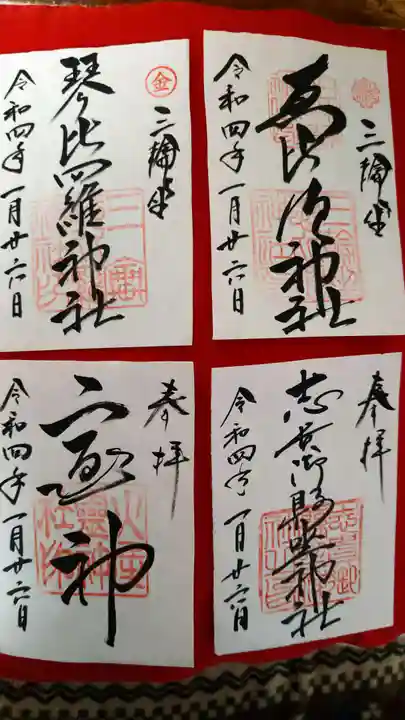 三輪坐
恵比須神社
令和四年一月廿六日
金
三輪坐
琴比羅神社
令和四年一月廿六日
奉拝
志貴御縣坐神社
令和四年一月廿六日
奉拝
神
令和四年一月廿六日